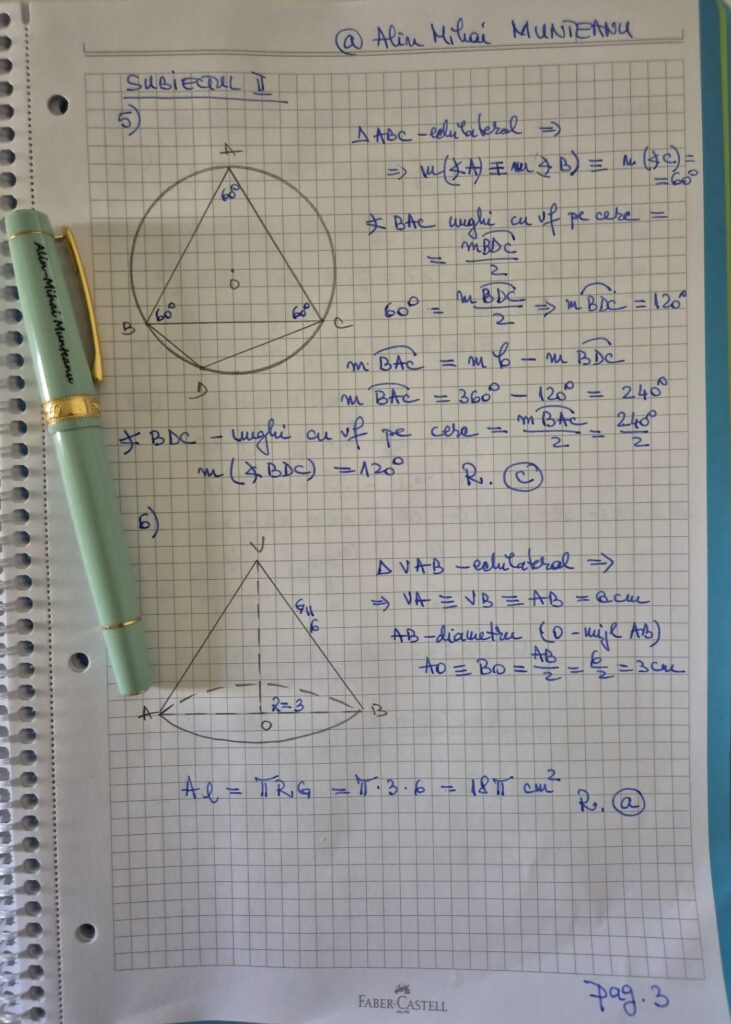 @ Alin Mihai MUNTEANU
SUBIECTUL II
5)
A
60°
O
B 60° 60° C
D
Δ ABC - echilateral ⇒
⇒ m(∢A) ≡ m(∢B) ≡ m(∢C) =
= 60°
∢ BAC unghi cu vf pe cerc =
= mBDC/2
60° = mBDC/2 ⇒ mBDC = 120°
mBAC = m b - mBDC
mBAC = 360° - 120° = 240°
∢ BDC - unghi cu vf pe cerc = mBAC/2 = 240°/2
m(∢ BDC) = 120° R. c
Alin-Mihai Munteanu
6)
V
G = 6
A R=3 B
O
Δ VAB - echilateral ⇒
⇒ VA ≡ VB ≡ AB = 6cm
AB - diametru (O - mijl AB)
AO ≡ BO = AB/2 = 6/2 = 3cm
Al = πRG = π·3·6 = 18π cm² R. a
FABER-CASTELL
pag. 3